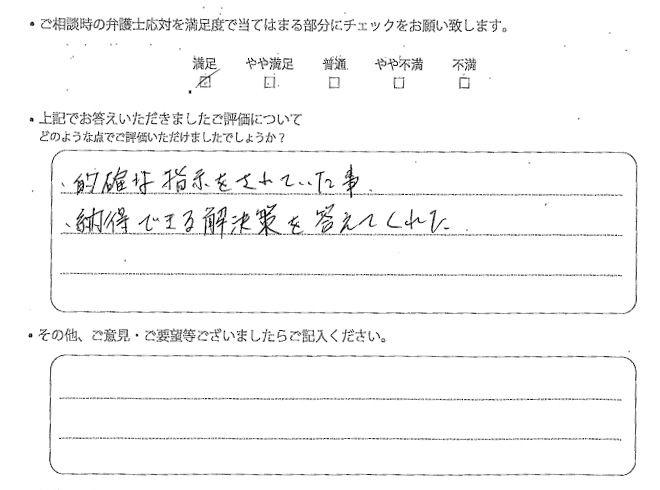 ・ご相談時の弁護士応対を満足度で当てはまる部分にチェックをお願い致します。
満足 やや満足 普通 やや不満 不満
・上記でお答えいただきましたご評価について
どのような点でご評価いただけましたでしょうか？
、的確な指示をされていた事
、納得できる解決策を答えてくれた
・その他、ご意見・ご要望等ございましたらご記入ください。